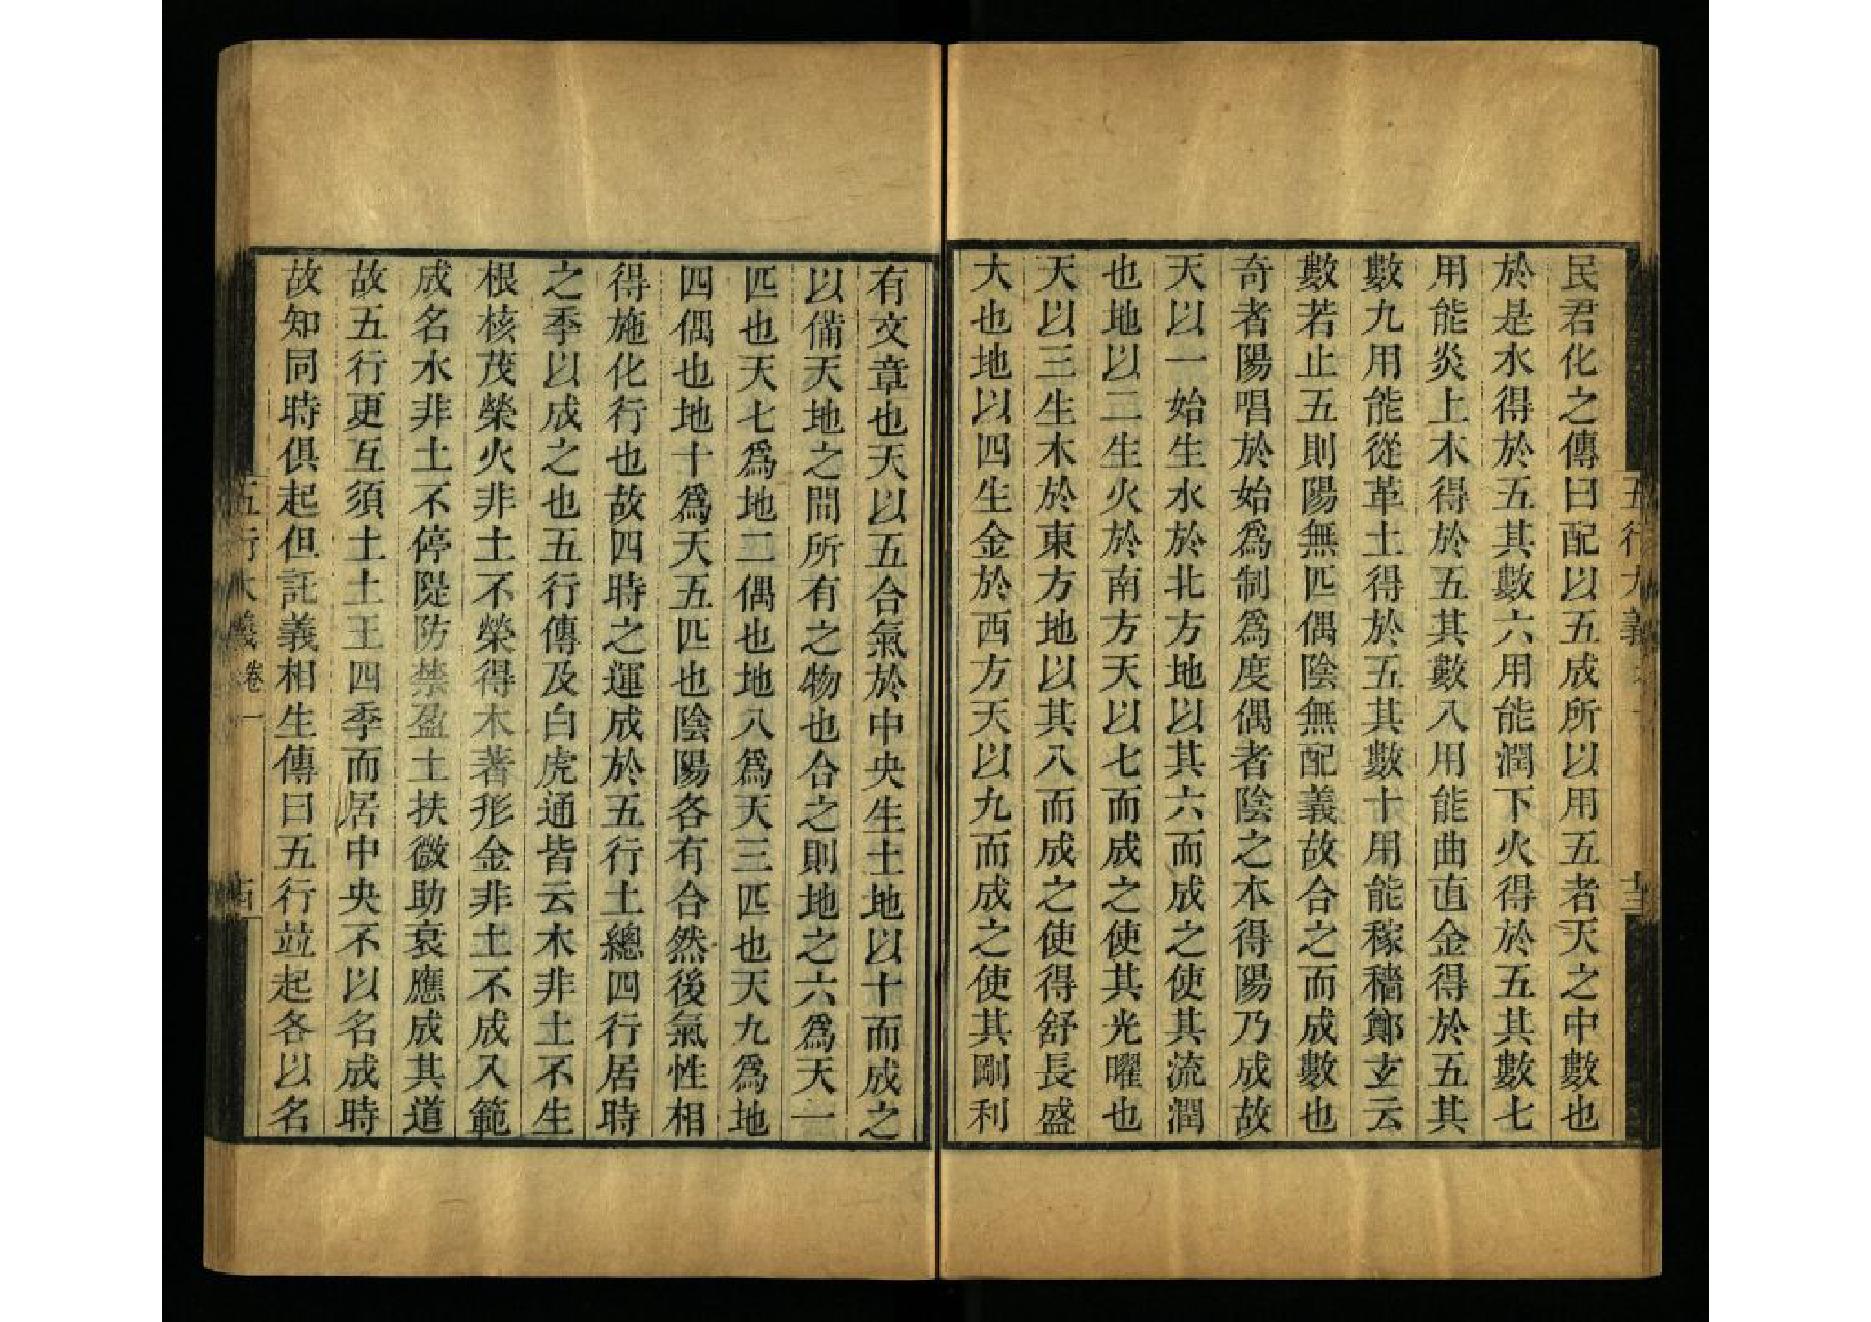 民君化之傳曰配以五成所以用五者天之中數也
於是水得於五其數六用能潤下火得於五其數七
用能炎上木得於五其數八用能曲直金得於五其
數九用能從革土得於五其數十用能稼穡鄭玄云
數若止五則陽無匹偶陰無配義故合之而成數也
奇者陽唱於始爲制爲度偶者陰之本得陽乃成故
天以一始生水於北方地以其六而成之使其流潤
也地以二生火於南方天以七而成之使其光曜也
天以三生木於東方地以其八而成之使得舒長盛
大也地以四生金於西方天以九而成之使其剛利
有文章也天以五合氣於中央生土地以十而成之
以備天地之間所有之物也合之則地之六爲天一
匹也天七爲地二偶也地八爲天三匹也天九爲地
四偶也地十爲天五匹也陰陽各有合然後氣性相
得施化行也故四時之運成於五行土總四行居時
之季以成之也五行傳及白虎通皆云木非土不生
根核茂榮火非土不榮得木著形金非土不成入範
成名水非土不停隄防禁盈土扶微助衰應成其道
故五行更互須土土王四季而居中央不以名成時
故知同時俱起但託義相生傳曰五行竝起各以名
五行大義卷一